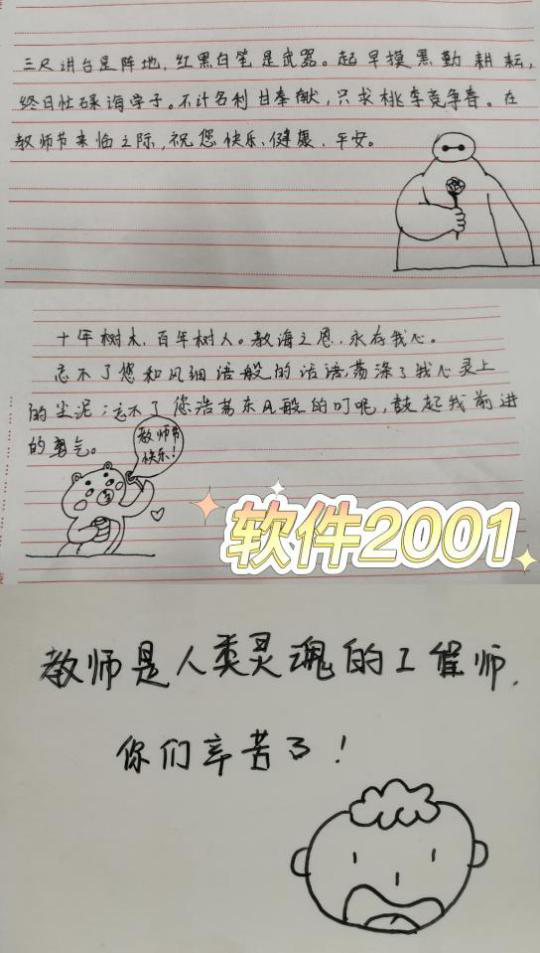 三尺讲台是阵地,红黑白笔是武器。起早摸黑勤耕耘,
终日忙碌诲学子。不计名利甘奉献,只求桃李竞争春。在
教师节来临之际,祝您快乐、健康、平安。
十年树木,百年树人。教诲之恩,永存我心。
忘不了您和风细语般的话语,荡涤了我心灵上
的尘泥;忘不了您浩荡东风般的叮咛,鼓起我前进
的勇气。
教师节
快乐!
软件2001
教师是人类灵魂的工程师,
你们辛苦了!